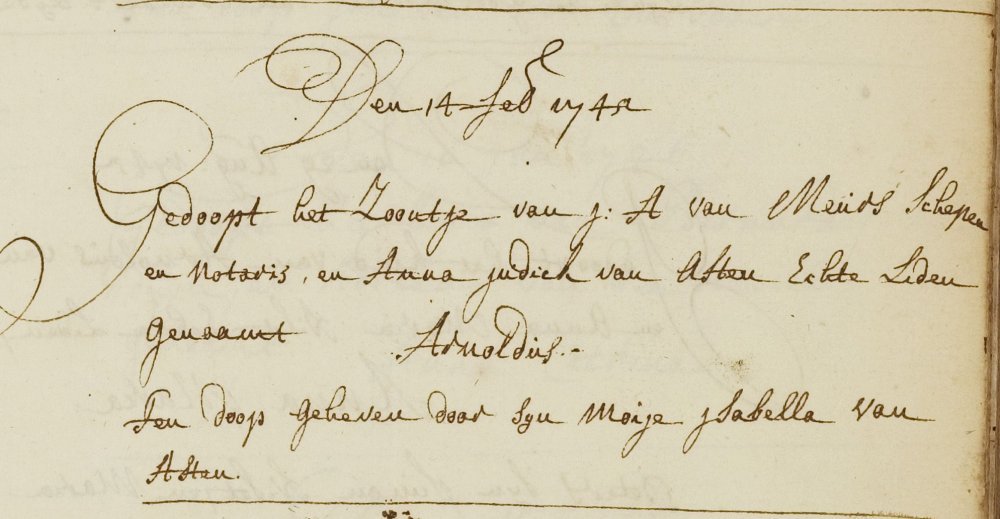 Den 14 Feb 1742
Gedoopt het Zoontje van j: A van Meurs Schepen
en Notaris, en Anna judick van Asten Echte Liden
genaamt Arnoldus.-
Ten doop geheven door syn Moije jsabella van
Asten.